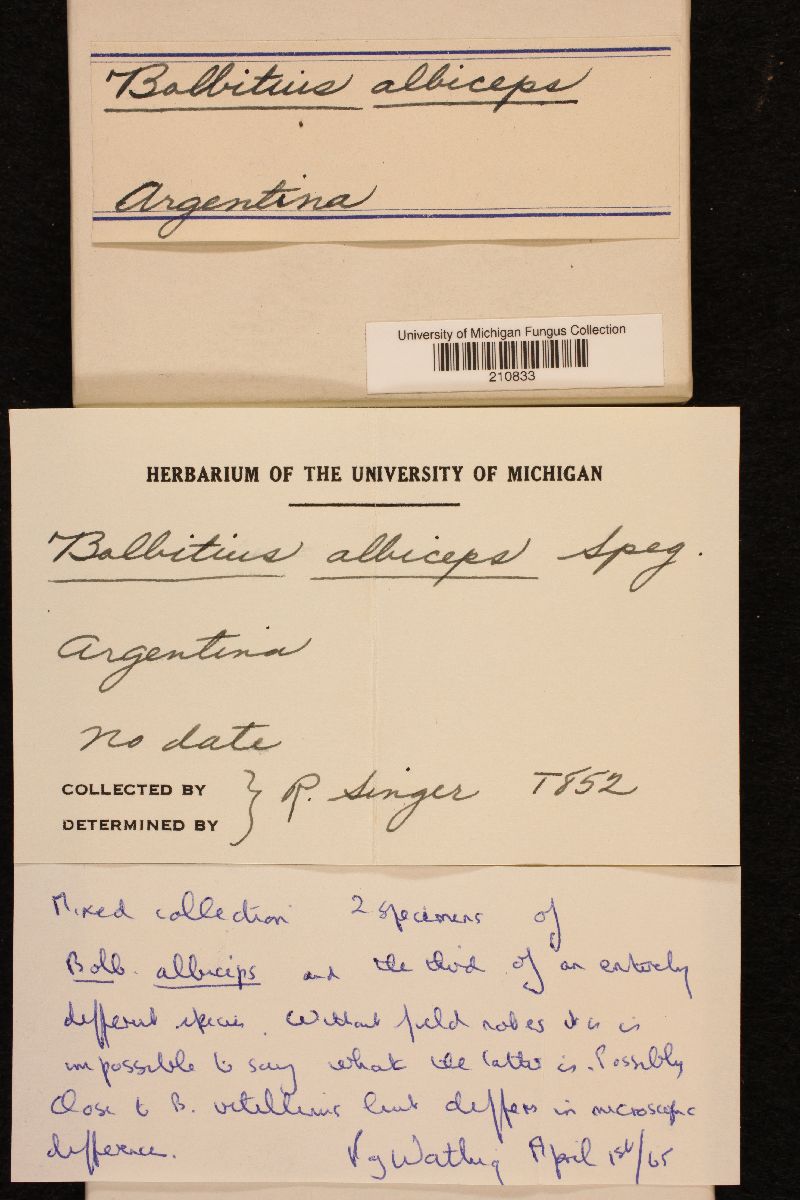 Bolbitius albiceps
Argentina
University of Michigan Fungus Collection
210833
HERBARIUM OF THE UNIVERSITY OF MICHIGAN
Bolbitius albiceps Speg.
Argentina
no date
COLLECTED BY
DETERMINED BY
} R. Singer T852
Mixed collection 2 specimens of
Bolb. albiceps and the third of an entirely
different species. Without field notes it is
impossible to say what the latter is. Possibly
close to B. vitellinus but differs in microscopic
difference.
Watling April 1st/65